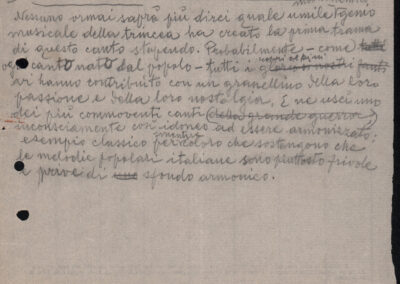 Nessuno ormai saprà più dirci quale umile genio
musicale della trincea ha creato la prima trama
di questo canto stupendo. Probabilmente - come tutti
ogni canto nato dal popolo - tutti i gloriosi nostri fanti
nostri alpini
vi hanno contribuito con un granellino della loro
passione e della loro nostalgia. E ne uscì uno
dei più commoventi canti (della grande guerra)
inconsciamente così idoneo ad essere armonizzato;
smentita
esempio classico per coloro che sostengono che
le melodie popolari italiane sono piuttosto frivole
e prive di uno sfondo armonico.